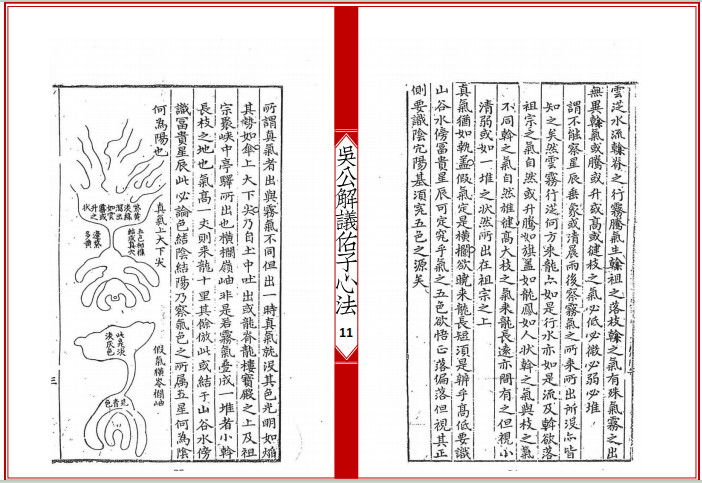 雲泛水流榦脊之行霧騰氣生榦祖之落枝榦之氣有殊氣霧之出
無異榦氣或騰或升或高或健枝之氣必低必微必弱必堆
謂不能察星辰垂象或清晨雨後察霧氣之所來所出所沒亦皆
知之矣然雲霧行從何方來龍亦如是行水亦如是流及榦欲落
祖宗之氣自然或升騰如旗蓋如龍鳳如人狀榦之氣與枝之氣
不同榦之氣自然雄健高大枝之氣來龍長遠亦間有之但視小
清弱或如一堆之狀然所出在祖宗之上
真氣猶如執蓋假氣定是橫欄欲曉來龍長短須是辨乎高低要識
山谷水傍富貴星辰可定究乎氣之五色欲悟正落偏落但視其正
側要識陰穴陽基須究五色之源矣
吳公解議佑子心法
11
所謂真氣者出與霧氣不同但出一時真氣就沒其色光明如焰
其勢如傘上大下尖乃自土中吐出或龍脊龍樓寶殿之上及祖
宗聚峽中亭驛所出也橫欄嶺岫非是若霧氣疊成一堆者小榦
長枝之地也氣高一丈則來龍十里其餘倣此或結于山谷水傍
識富貴星辰此必論色結陰結陽乃察氣色之所屬五星何為陰
何為陽也
真氣上大下尖
假氣橫岑欄岫
三